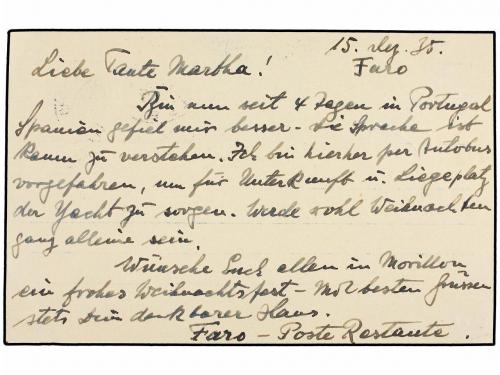 15. Dez. 35.
Liebe Tante Martha! Faro
Bin nun seit 4 Tagen in Portugal
Spanien gefiel mir besser - die Sprache ist
kaum zu verstehen. Ich bin hierher per Autobus
vorgefahren, um für Unterkunft u. Liegeplatz
der Yacht zu sorgen. Werde wohl Weihnachten
ganz alleine sein.
Wünsche Euch allen in Morillon
ein frohes Weihnachtsfest - Mit besten Grüssen
stets Dein dankbarer Hans.
Faro - Poste Restante.